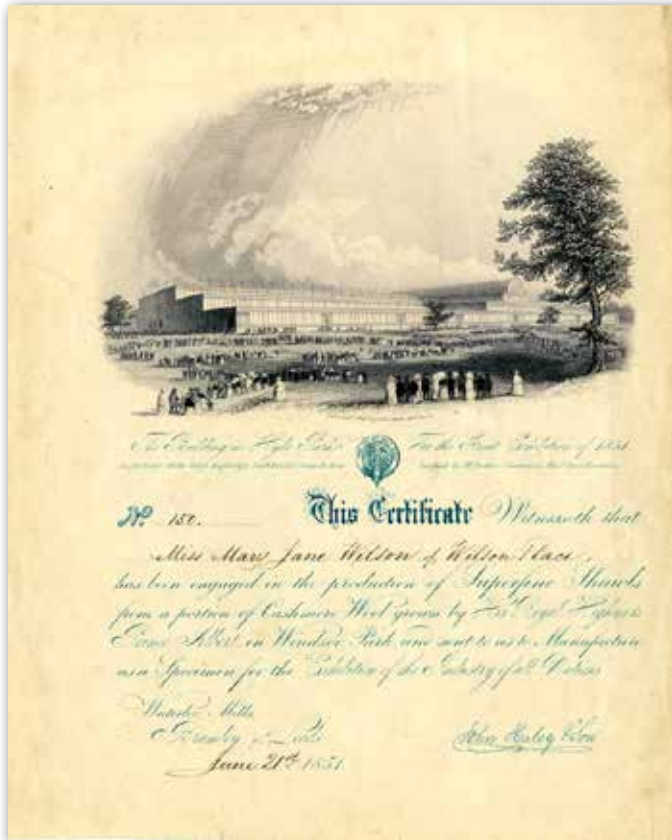 The Building in Hyde Park For the Great Exhibition of 1851
No. 150. This Certificate Witnesseth that
Miss Mary Jane Wilson of Wilson Place,
has been engaged in the production of Superfine Shawls
from a portion of Cashmere Wool grown by His Royal Highness
Prince Albert in Windsor Park and sent to us to Manufacture
as a Specimen for the Exhibition of the Industry of all Nations
Waterloo Mills
Bramley Leeds
June 21st 1851 John Haley & Son